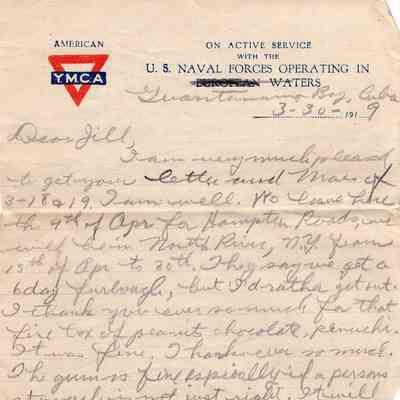 AMERICAN
Y.M.C.A.
ON ACTIVE SERVICE
WITH THE
U. S. NAVAL FORCES OPERATING IN
EUROPEAN WATERS
Guantanamo Bay, Cuba
3-30- 1919
Dear Jill,
I am very much pleased
to get your letter and Mae's of
3-18 & 19. I am well. We leave here
the 9th of Apr. for Hampton Roads, we
will be in North River, N.Y. from
15th of Apr to 30th. They say we get a
6 day furlough, but I'd ratha get out.
I thank you ever so much for that
fine box of peanut chocolate, penuchi.
It was fine. Thank ever so much.
The gum is fine especially if a persons
just right. It will